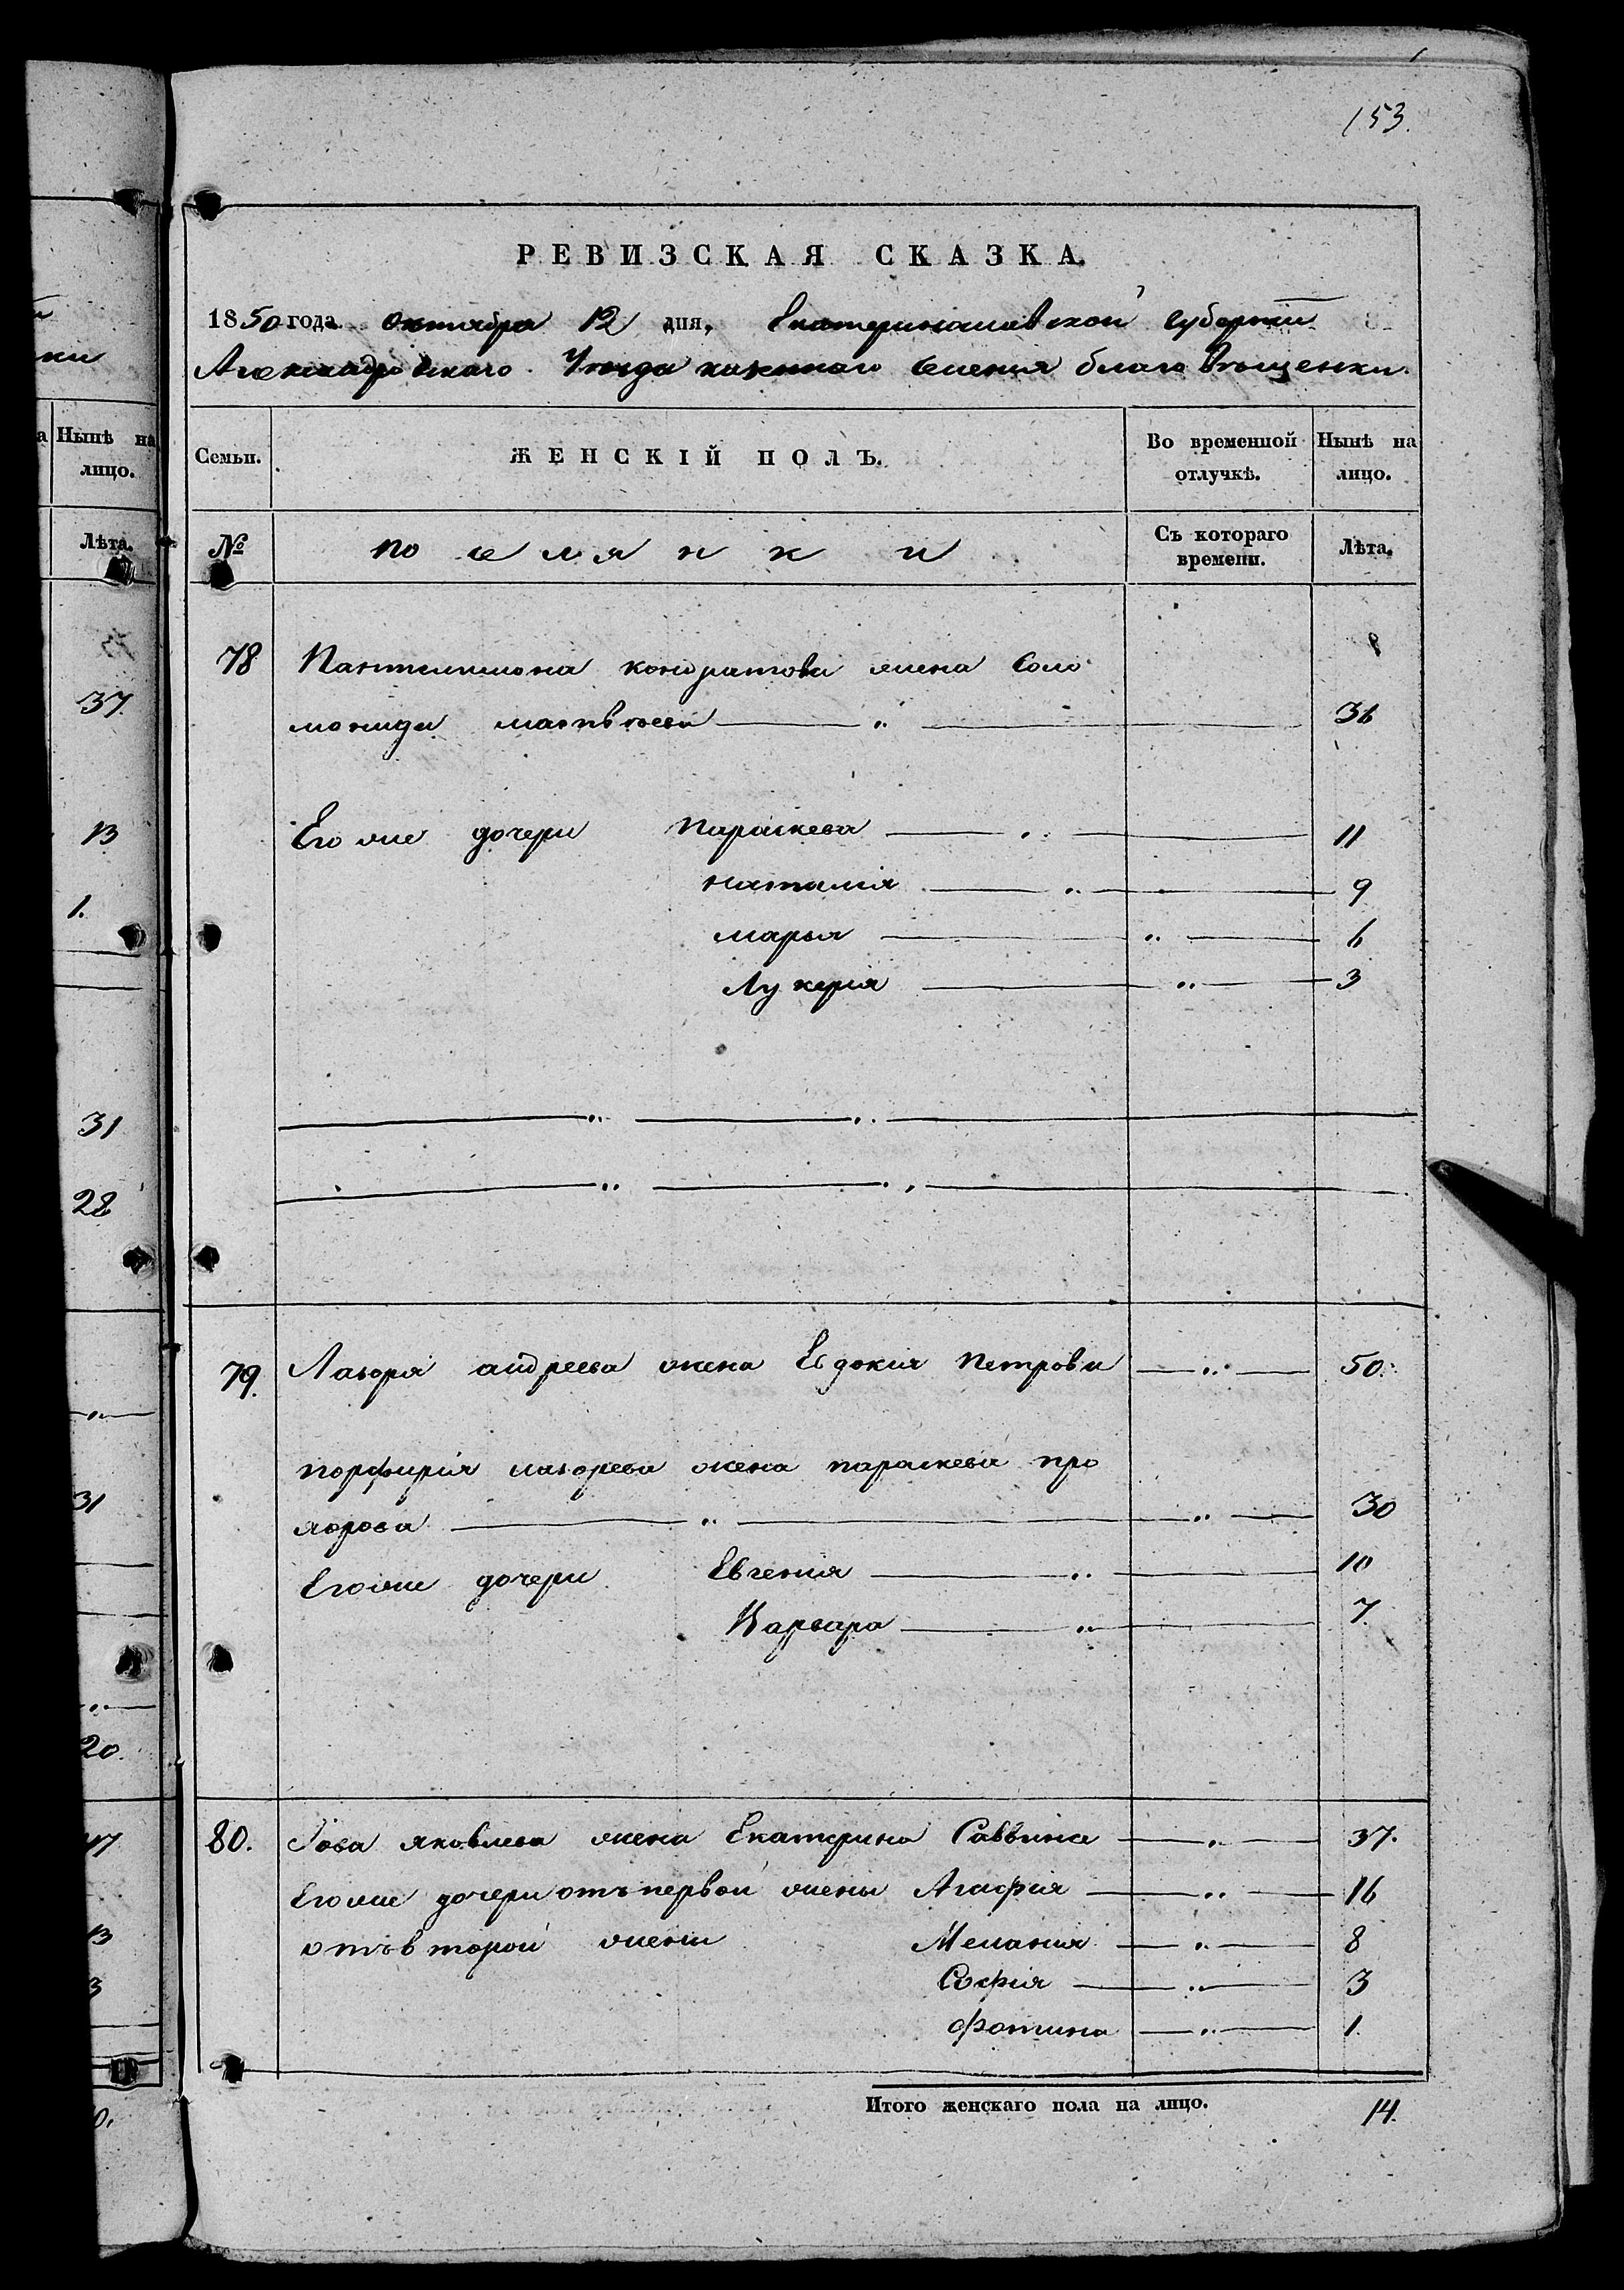 153.
РЕВИЗСКАЯ СКАЗКА.
1850 года октября 12 дня, Екатеринославской губернии
Александровскаго Уезда казеннаго селения благовѣщенки.
Семьи.
ЖЕНСКІЙ ПОЛЪ.
Во временной отлучкѣ.
Нынѣ на лицо.
№
поселянки
Съ котораго времени.
Лѣта.
78 Пантилимона кондратова жена Соло
монида матвѣева 36
Его же дочери Параскева 11
наталия 9
марья 6
Лукерия 3
79. Лазоря андреева жена Евдокия Петрова 50.
порфирия лазорева жена параскева про
хорова 30
Его же дочери Евгения 10
Варвара 7
80. Іова яковлева жена Екатерина Саввина 37.
Его же дочери отъ первой жены Агафия 16
отъ второй жены Мелания 8
София 3
фотина 1.
Итого женскаго пола на лицо. 14.
ки
а Нынѣ на
лицо.
Лѣта.
37.
13
1.
31
28
31
20.
47
13
3
0.